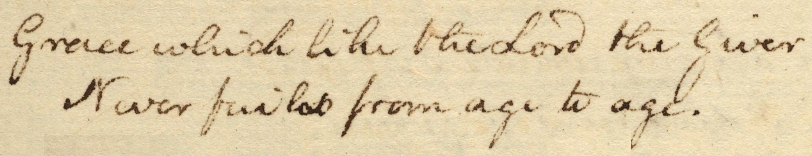 Grace which like the Lord the Giver
Never fails from age to age.